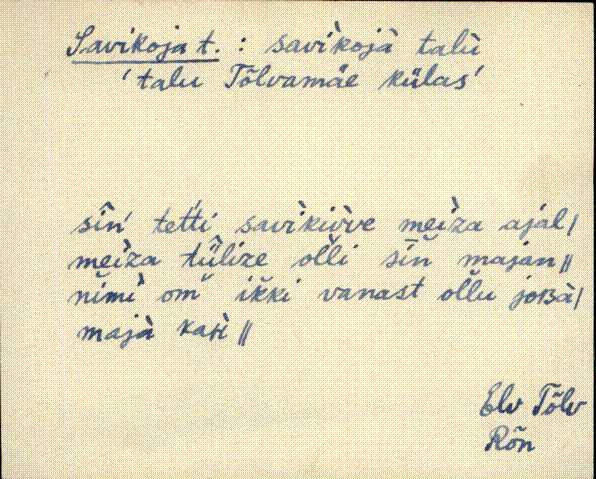 Savikoja t. : savìkojà talù
'talu Tõlvamäe külas'
sîn' tet́ti savìkiv̀ve meìza ajal|
meìza tǜlize ol̆li sīn majan||
nĭmì om̆ ik̆ki vanast ol̆lu joʙà|
majà kaʜ̀ ||
Elv Tõlv
Rõn